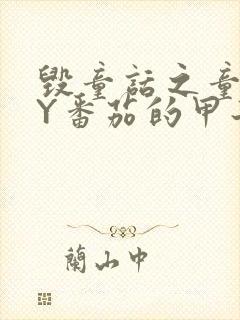 毁童话之童
Y番茄的甲
蘭山中